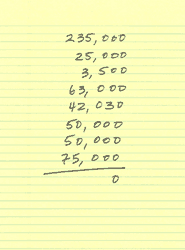 235,000
25,000
3,500
63,000
42,030
50,000
50,000
75,000
0